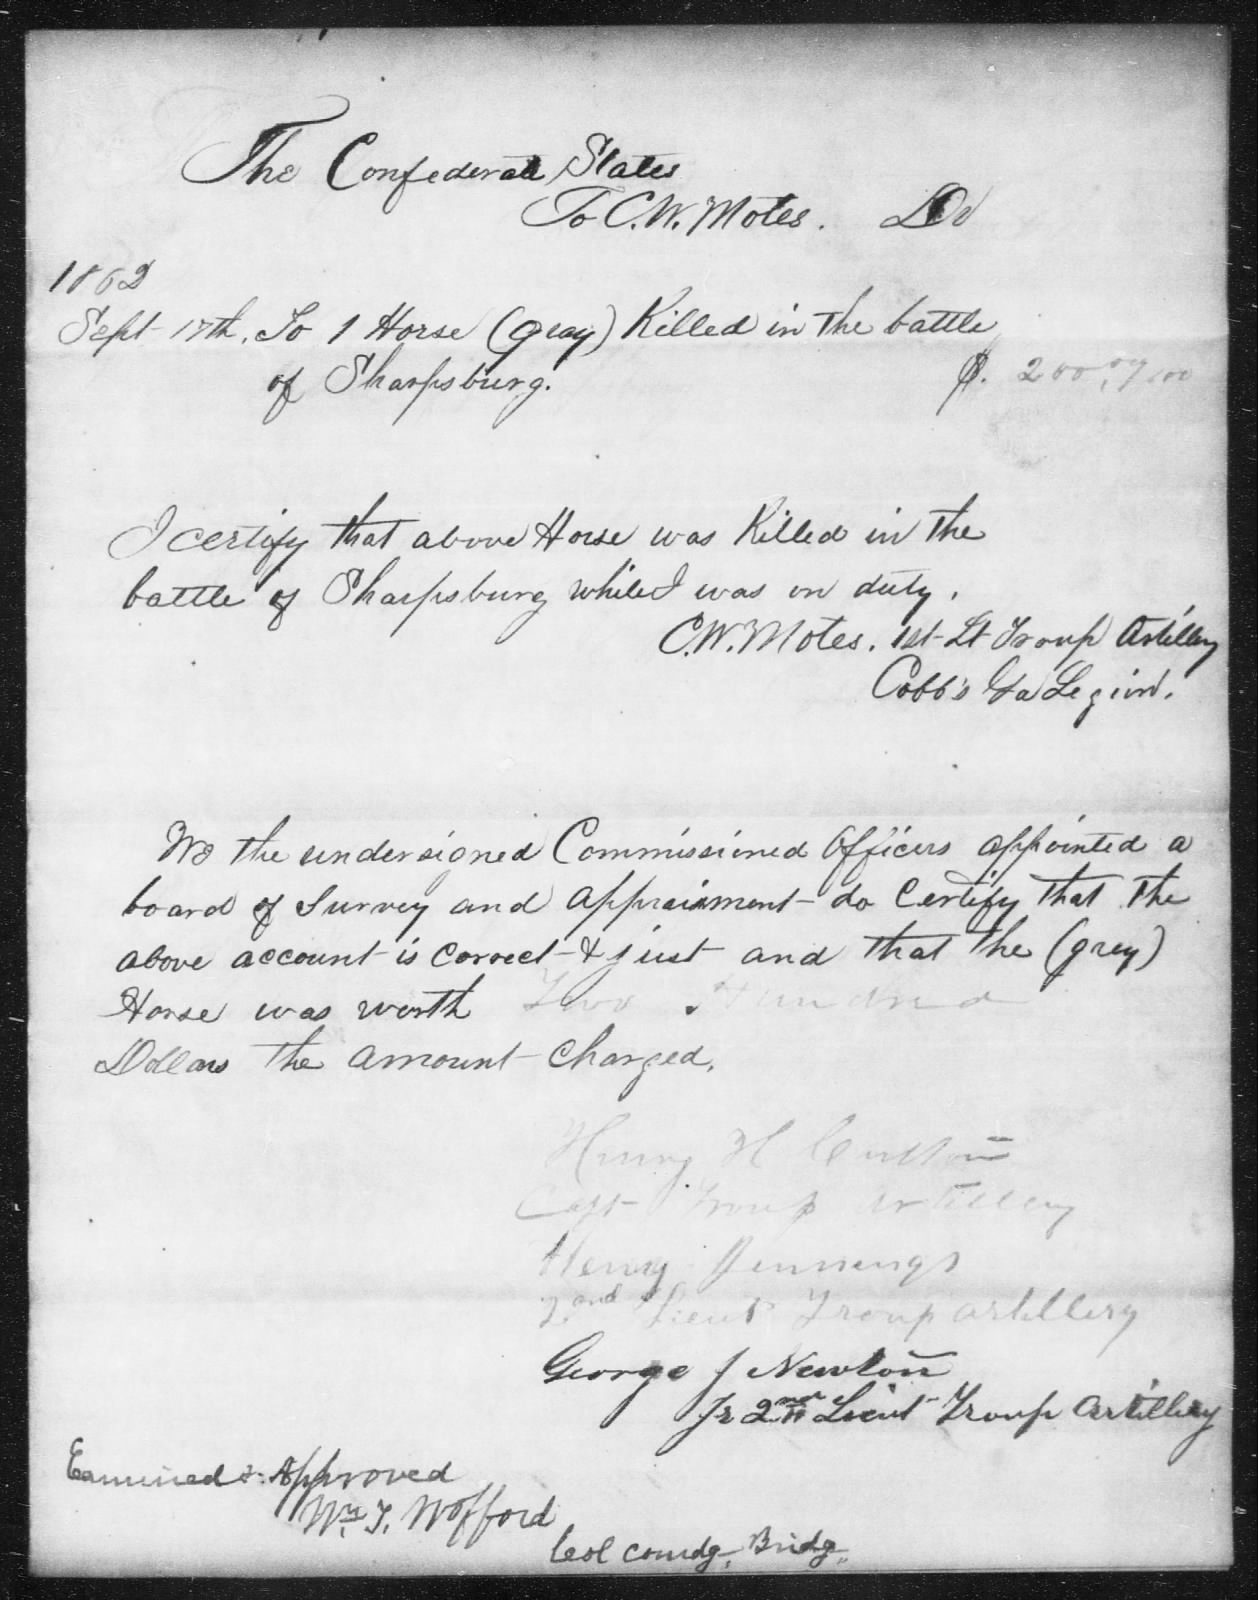 The Confederate States
To C.W. Motes. Dr
1862
Sept 17th. To 1 Horse (gray) Killed in the battle
of Sharpsburg. $. 200.00/100
I certify that above Horse was Killed in the
battle of Sharpsburg while I was on duty.
C.W. Motes. 1st Lt Troup Artillery
Cobb's Ga Legion.
We the undersigned Commissioned Officers appointed a
board of Survey and appraisment do Certify that the
above account is correct & just and that the (grey)
Horse was worth Two Hundred
Dollars the amount charged.
Henry H Carlton
Capt Troup Artillery
Henry Jennings
2nd Lieut Troup artillery
George J Newton
Jr 2nd Lieut Troup Artillery
Examined & Approved
Wm. T. Wofford
Col comdg. Bridg.